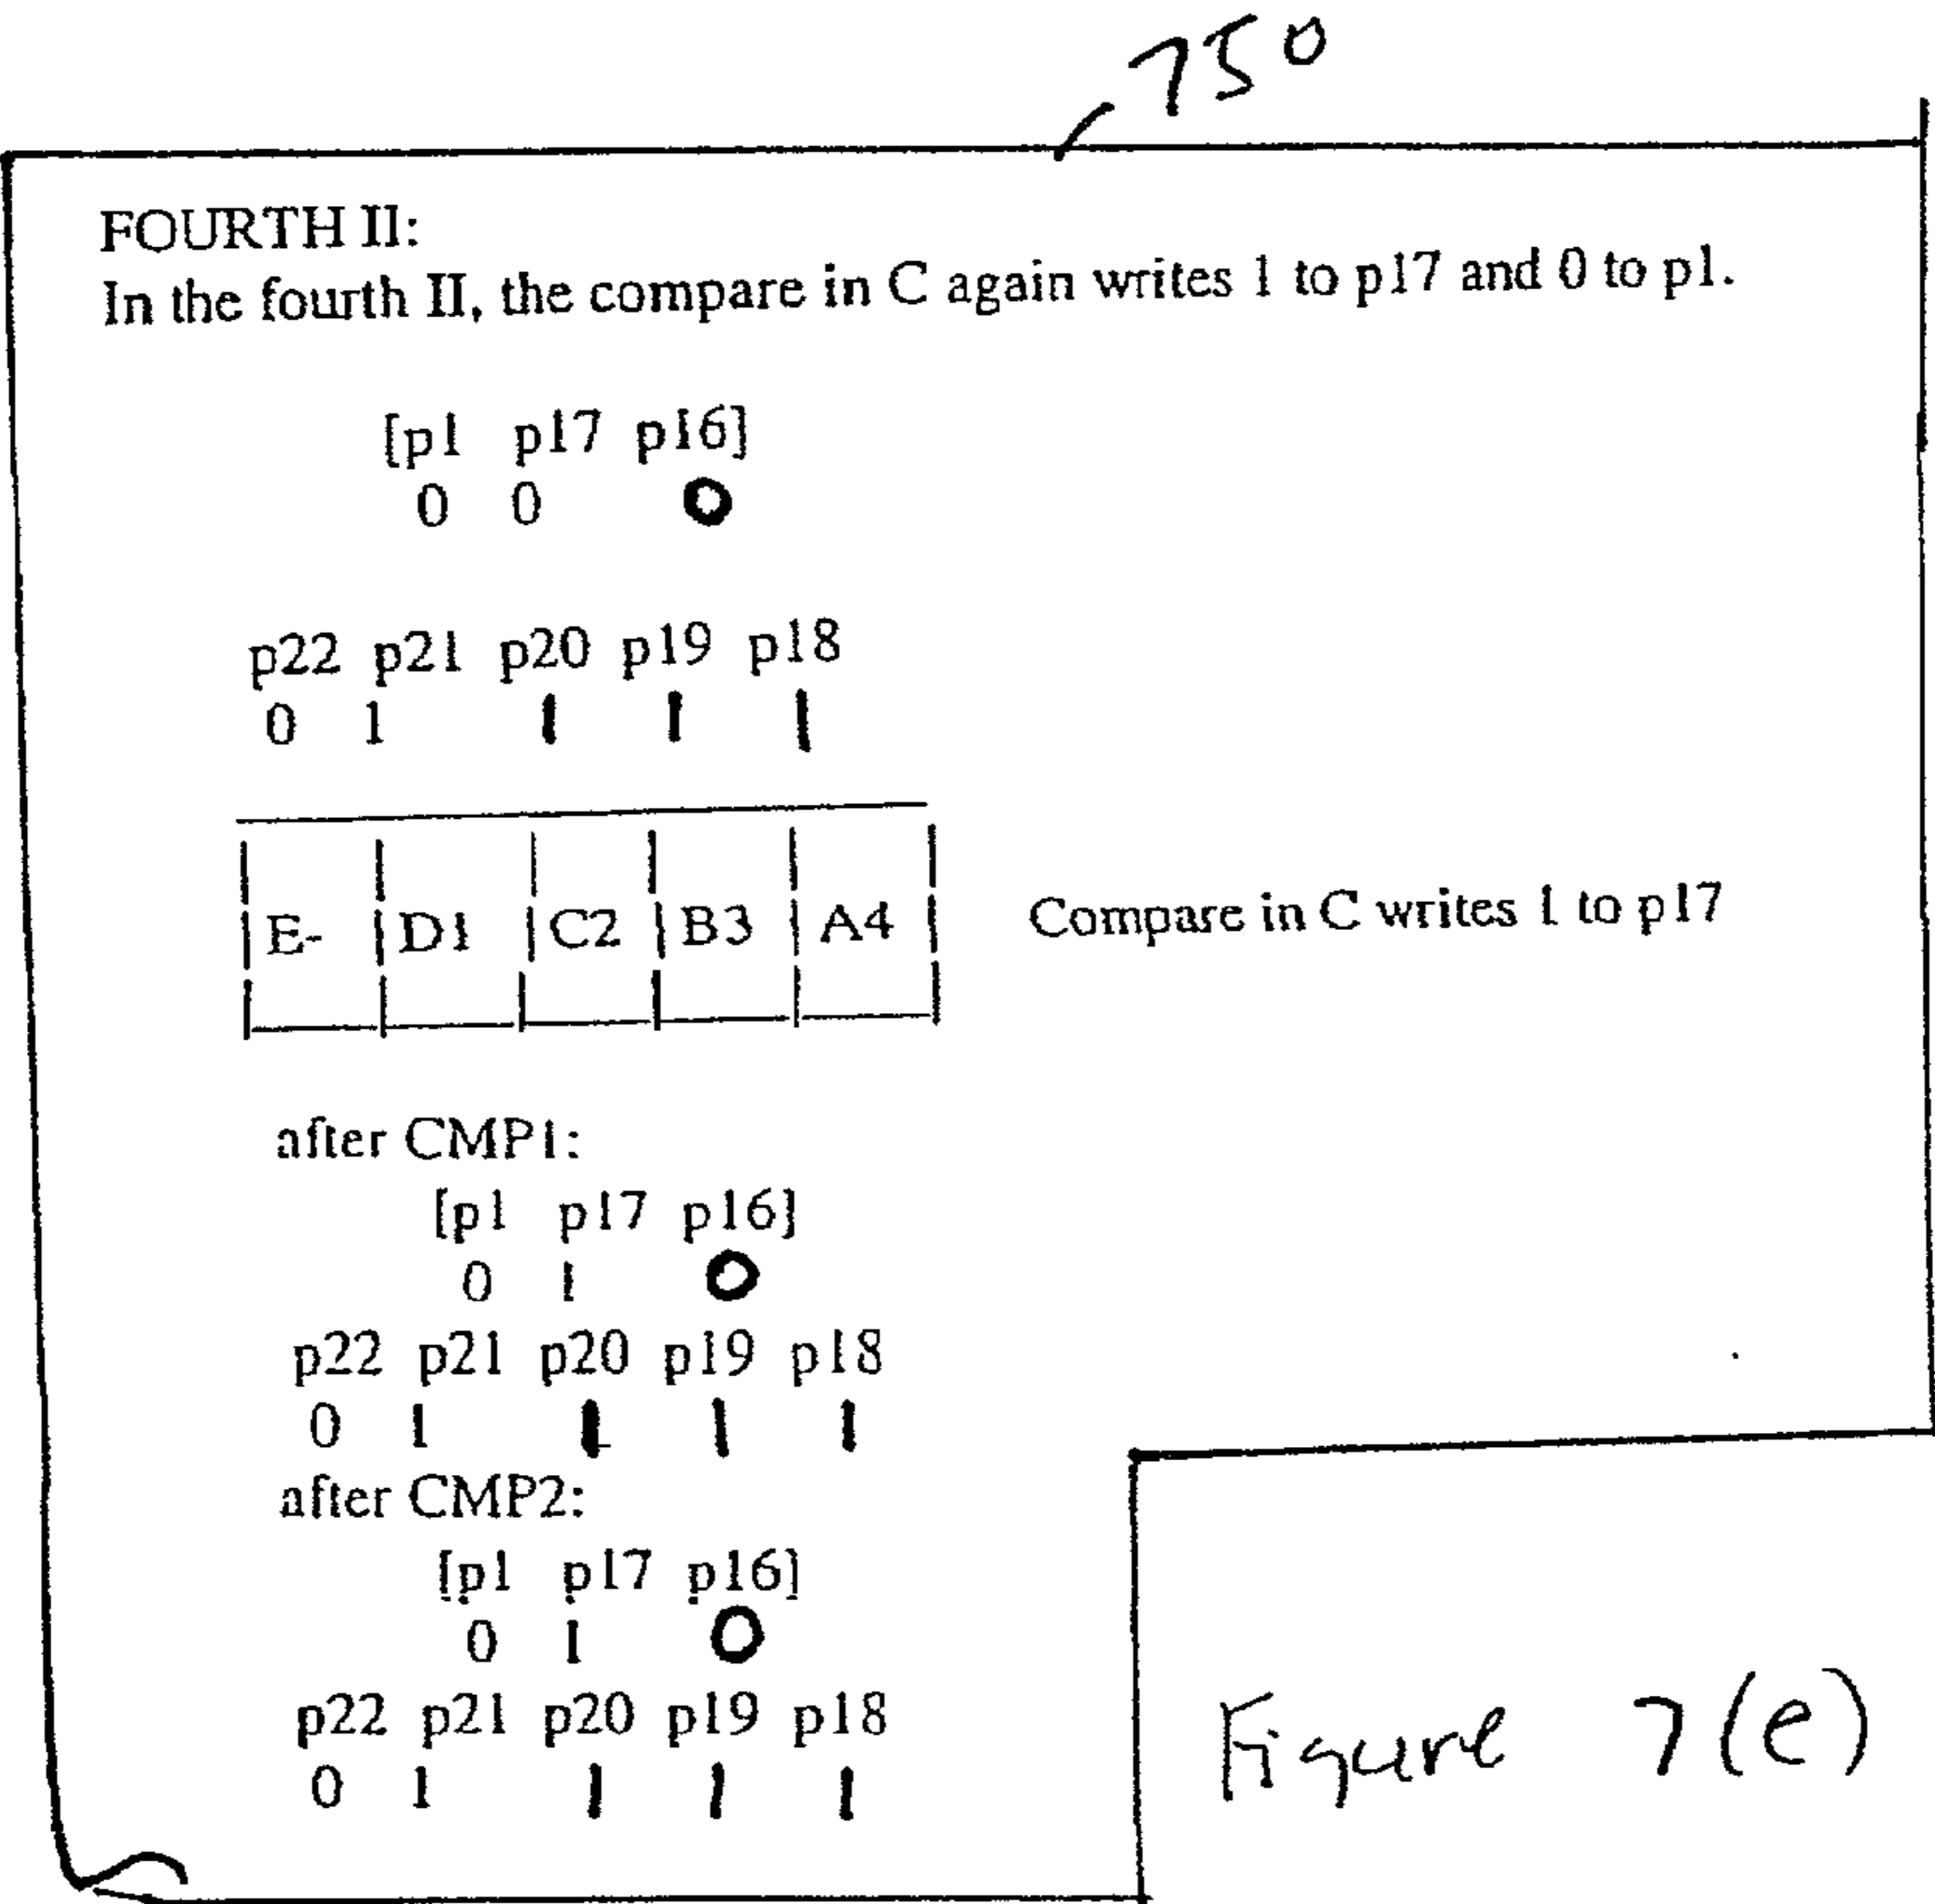 750
FOURTH II:
In the fourth II, the compare in C again writes 1 to p17 and 0 to p1.
[p1 p17 p16]
0 0 0
p22 p21 p20 p19 p18
0 1 1 1 1
E- D1 C2 B3 A4 Compare in C writes 1 to p17
after CMP1:
[p1 p17 p16]
0 1 0
p22 p21 p20 p19 p18
0 1 1 1 1
after CMP2:
[p1 p17 p16]
0 1 0
p22 p21 p20 p19 p18
0 1 1 1 1
Figure 7(e)